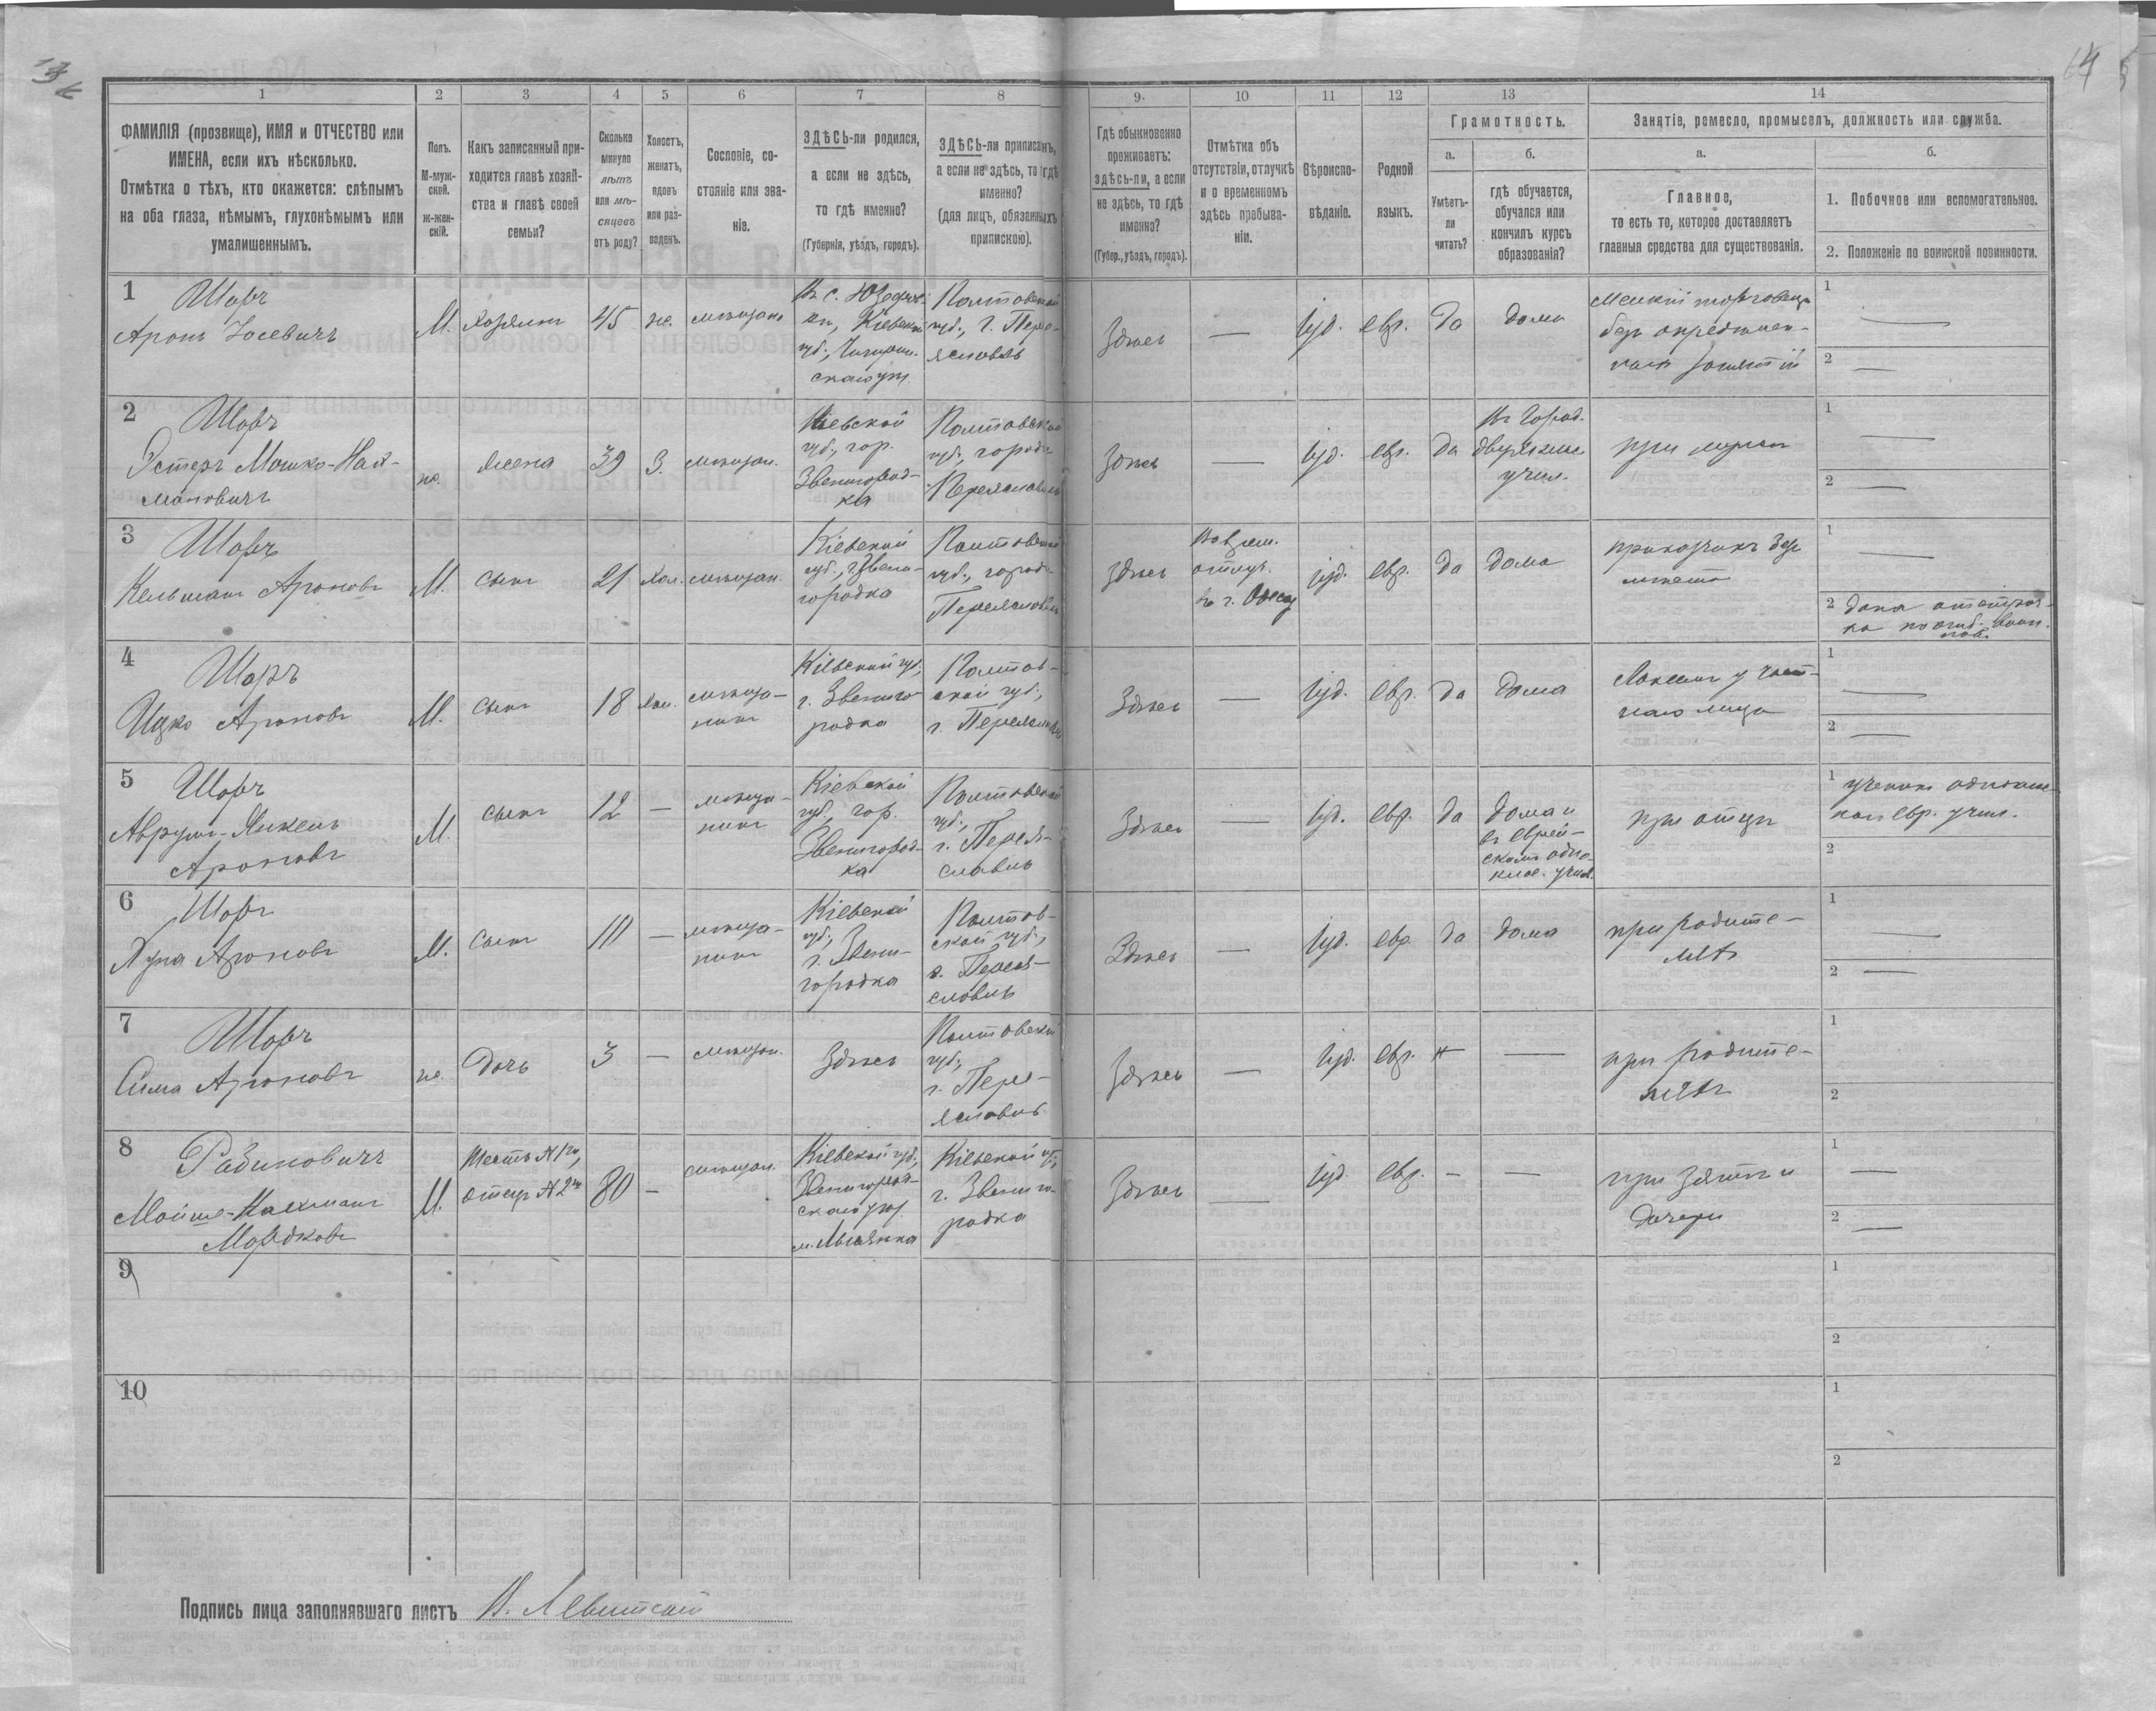 13
14
1
2
3
4
5
6
7
8
9.
10
11
12
13
14
ФАМИЛІЯ (прозвище), ИМЯ и ОТЧЕСТВО или
ИМЕНА, если ихъ нѣсколько.
Отмѣтка о тѣхъ, кто окажется: слѣпымъ
на оба глаза, нѣмымъ, глухонѣмымъ или
умалишеннымъ.
Полъ.
М-муж-
ской.
Ж-жен-
скій.
Какъ записанный при-
ходится главѣ хозяй-
ства и главѣ своей
семьи?
Сколько
минуло
лѣтъ
или мѣ-
сяцевъ
отъ роду?
Холостъ,
женатъ,
вдовъ
или раз-
веденъ.
Сословіе, со-
стояніе или зва-
ніе.
ЗДѢСЬ-ли родился,
а если не здѣсь,
то гдѣ именно?
(Губернія, уѣздъ, городъ).
ЗДѢСЬ-ли приписанъ,
а если не здѣсь, то гдѣ
именно?
(для лицъ, обязанныхъ
припискою).
Гдѣ обыкновенно
проживаетъ:
здѣсь-ли, а если
не здѣсь, то гдѣ
именно?
(Губер., уѣздъ, городъ).
Отмѣтка объ
отсутствіи, отлучкѣ
и о временномъ
здѣсь пребыва-
ніи.
Вѣроиспо-
вѣданіе.
Родной
языкъ.
Грамотность.
а.
Умѣетъ-
ли
читать?
б.
гдѣ обучается,
обучался или
кончилъ курсъ
образованія?
Занятіе, ремесло, промыселъ, должность или служба.
а.
Главное,
то есть то, которое доставляетъ
главныя средства для существованія.
б.
1. Побочное или вспомогательное.
2. Положеніе по воинской повинности.
1
Шоръ
Аронъ Іосевичъ
М.
Хозяинъ
45
же.
мѣщан.
Кіевской
губ., Чигирин-
скаго уѣз.
Полтавской
губ., г. Пере-
яславль
Здѣсь
—
іуд.
евр.
да
дома
Мелкій торговецъ
безъ опредѣлен-
ныхъ занятій
1 —
2 —
2
Шоръ
Эстеръ Мошко-Нах-
мановичъ
ж.
Жена
39
З.
мѣщан.
Кіевской
губ., гор.
Звенигород-
ка
Полтавской
губ., города
Переяславль
Здѣсь
—
іуд.
евр.
да
Въ Город.
двухклас.
учил.
при мужѣ
1 —
2 —
3
Шоръ
Кельманъ Ароновъ
М.
сынъ
21
Хол.
мѣщан.
Кіевской
губ., г. Звени-
городка
Полтавской
губ., города
Переяславль
здѣсь
отлуч.
въ г. Одессу
іуд.
евр.
да
дома
прикащикъ безъ
мѣста
1 —
2 дана отсроч-
ка по отб. воин.
пов.
4
Шоръ
Ицко Ароновъ
М.
сынъ
18
Хол.
мѣща-
нинъ
Кіевской губ.,
г. Звениго-
родка
Полтав-
ской губ.,
г. Переяславль
Здѣсь
—
іуд.
евр.
да
дома
у част-
наго лица
1 —
2 —
5
Шоръ
Аврумъ-Янкель
Ароновъ
М.
сынъ
12
—
мѣща-
нинъ
Кіевской
губ., гор.
Звенигород-
ка
Полтавской
губ.,
г. Перея-
славль
Здѣсь
—
іуд.
евр.
да
дома и
въ еврей-
скомъ одно-
клас. учил.
при отцѣ
1 ученикъ однокл.
нач. евр. учил.
2
6
Шоръ
Ароновъ
М.
сынъ
10
—
мѣща-
нинъ
Кіевской
губ.,
г. Звени-
городка
Полтав-
ской губ.,
г. Перея-
славль
Здѣсь
—
іуд.
евр.
да
дома
при родите-
ляхъ
1 —
2 —
7
Шоръ
Сима Ароновъ
ж.
Дочь
3
—
мѣщан.
Здѣсь
Полтавской
губ.,
г. Пере-
яславль
Здѣсь
—
іуд.
евр.
н
—
при родите-
ляхъ
1
2
8
Рабиновичъ
Мойше-Нахманъ
Мордковъ
М.
Тесть №1го,
отецъ №2й
80
—
мѣщан.
Кіевской губ.,
Звенигород-
скаго уѣз.
м. Лысянка
Кіевской губ.,
г. Звениго-
родка
Здѣсь
—
іуд.
евр.
—
—
при зятѣ и
дочери
1 —
2 —
9
1
2
10
1
2
Подпись лица заполнявшаго листъ В. Левитскій